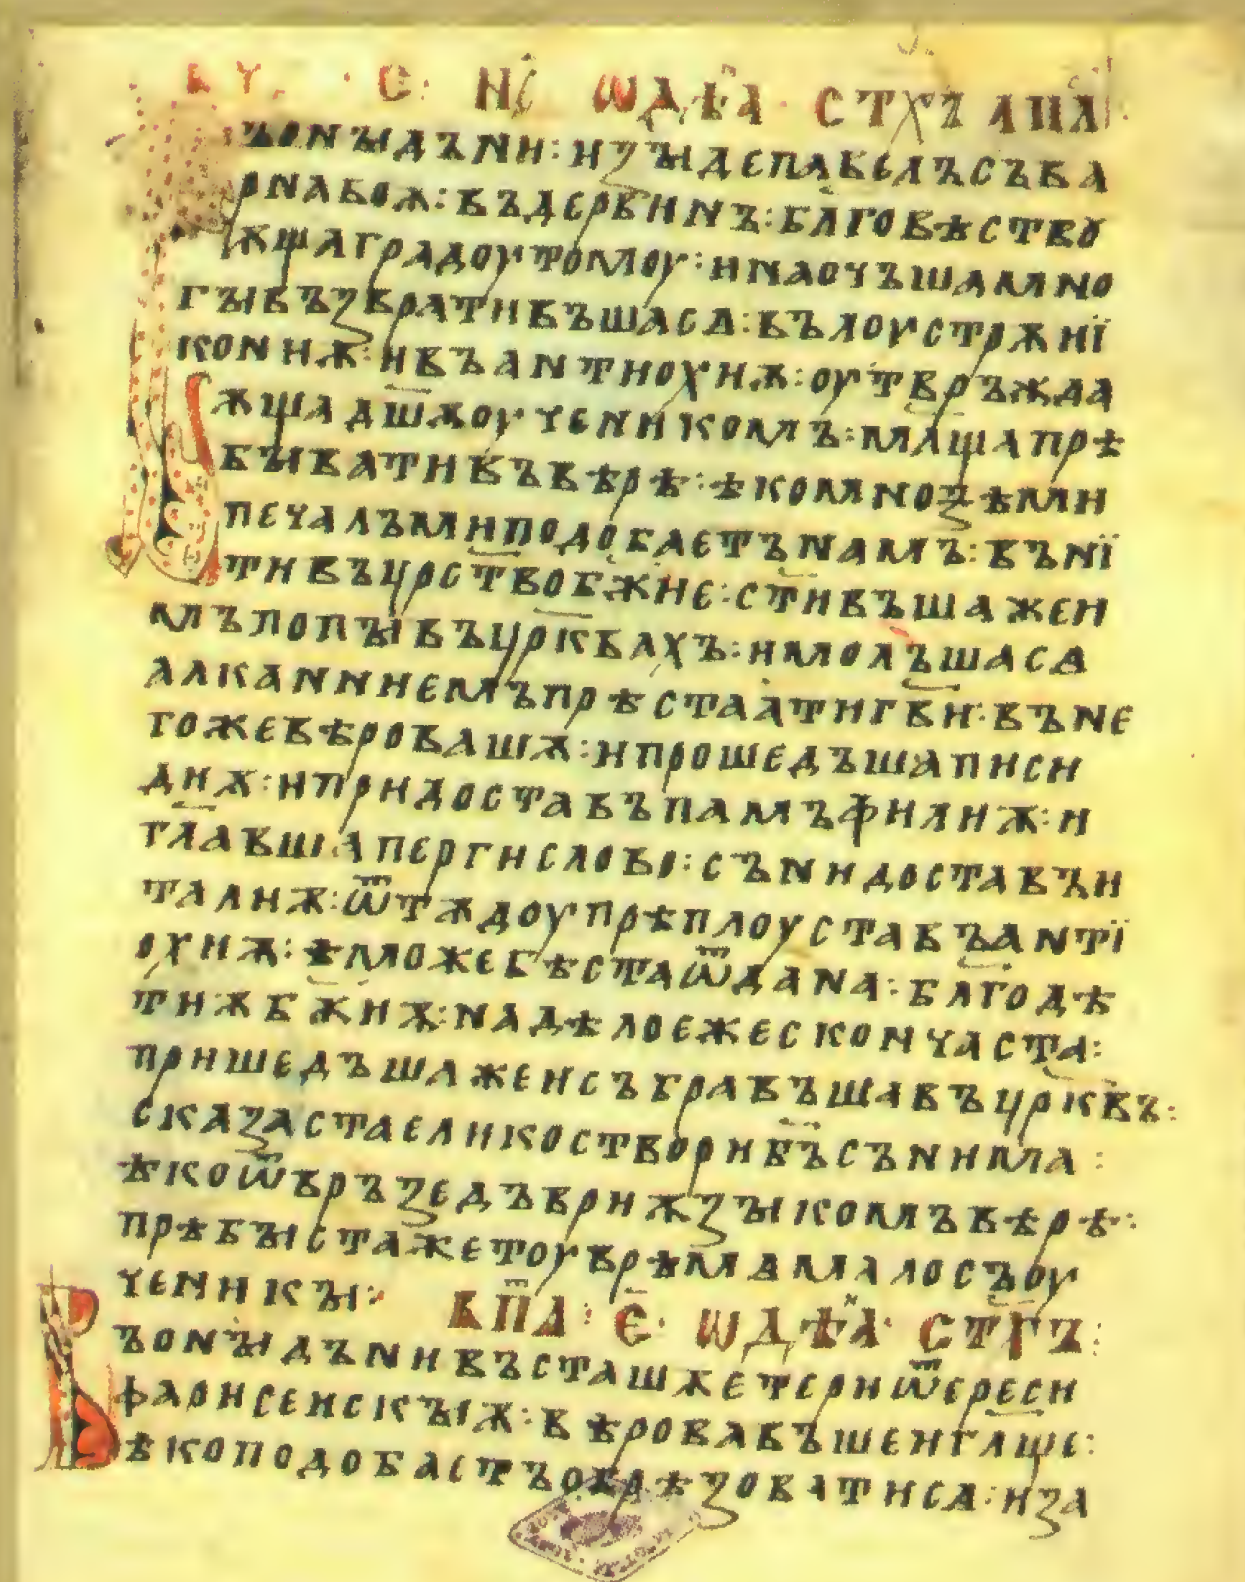 е҃ · н҃ ѿ дѣꙗ · стхъ апл
ъонꙑдъни : изꙑдепавелъсъва
рнавоѫ : въдервинъ : бл҃говѣство
ѫщаградоутомоу : инаоучьшамно
гꙑвъзвративъшасѧ : вълоустрѫнї
кониѫ : ивъантиохиѫ : оутвръжда
ѫщадш҃ѫоученикомъ : млѧщапрѣ
бꙑвативъвѣрѣ : ѣкомноꙁѣми
печальмиподобаетънамъ : вънї
тивъцр҃ствобж҃ие : ст҃ивъшажеи
мъпопꙑвъцр҃квахъ : имолъшасѧ
алканниемъпрѣстаатигв҃и · въне
гожевѣровашѫ : ипрошедъшаписи
диѫ : ипридоставъпамъфилиѫ : и
гл҃авшапергисловo : сънидоставъи
талиѫ : ѿтѫдоупрѣплоуставъантї
охиѫ : ѣможебѣстаѿдана : бл҃годѣ
тиѫбж҃иѫ : надѣлоежесконьчаста :
пришедъшажеисъбравъшавъцр҃квъ :
сказастаеликостворибг҃ъсънима :
ѣкоѿвръзедъвриѫзꙑкомъвѣрѣ :
прѣбꙑстажетоуврѣмѧмалосъоу
ченикꙑ : в҃ п҃ѧ : е҃ · ѿ дѣꙗ · стг҃ъ :
ъонꙑдънивъсташѫетериѿереси
фарисеискꙑѫ : вѣровавъшеигл҃ще :
ѣкоподобастъобрѣзоватисѧ : иза